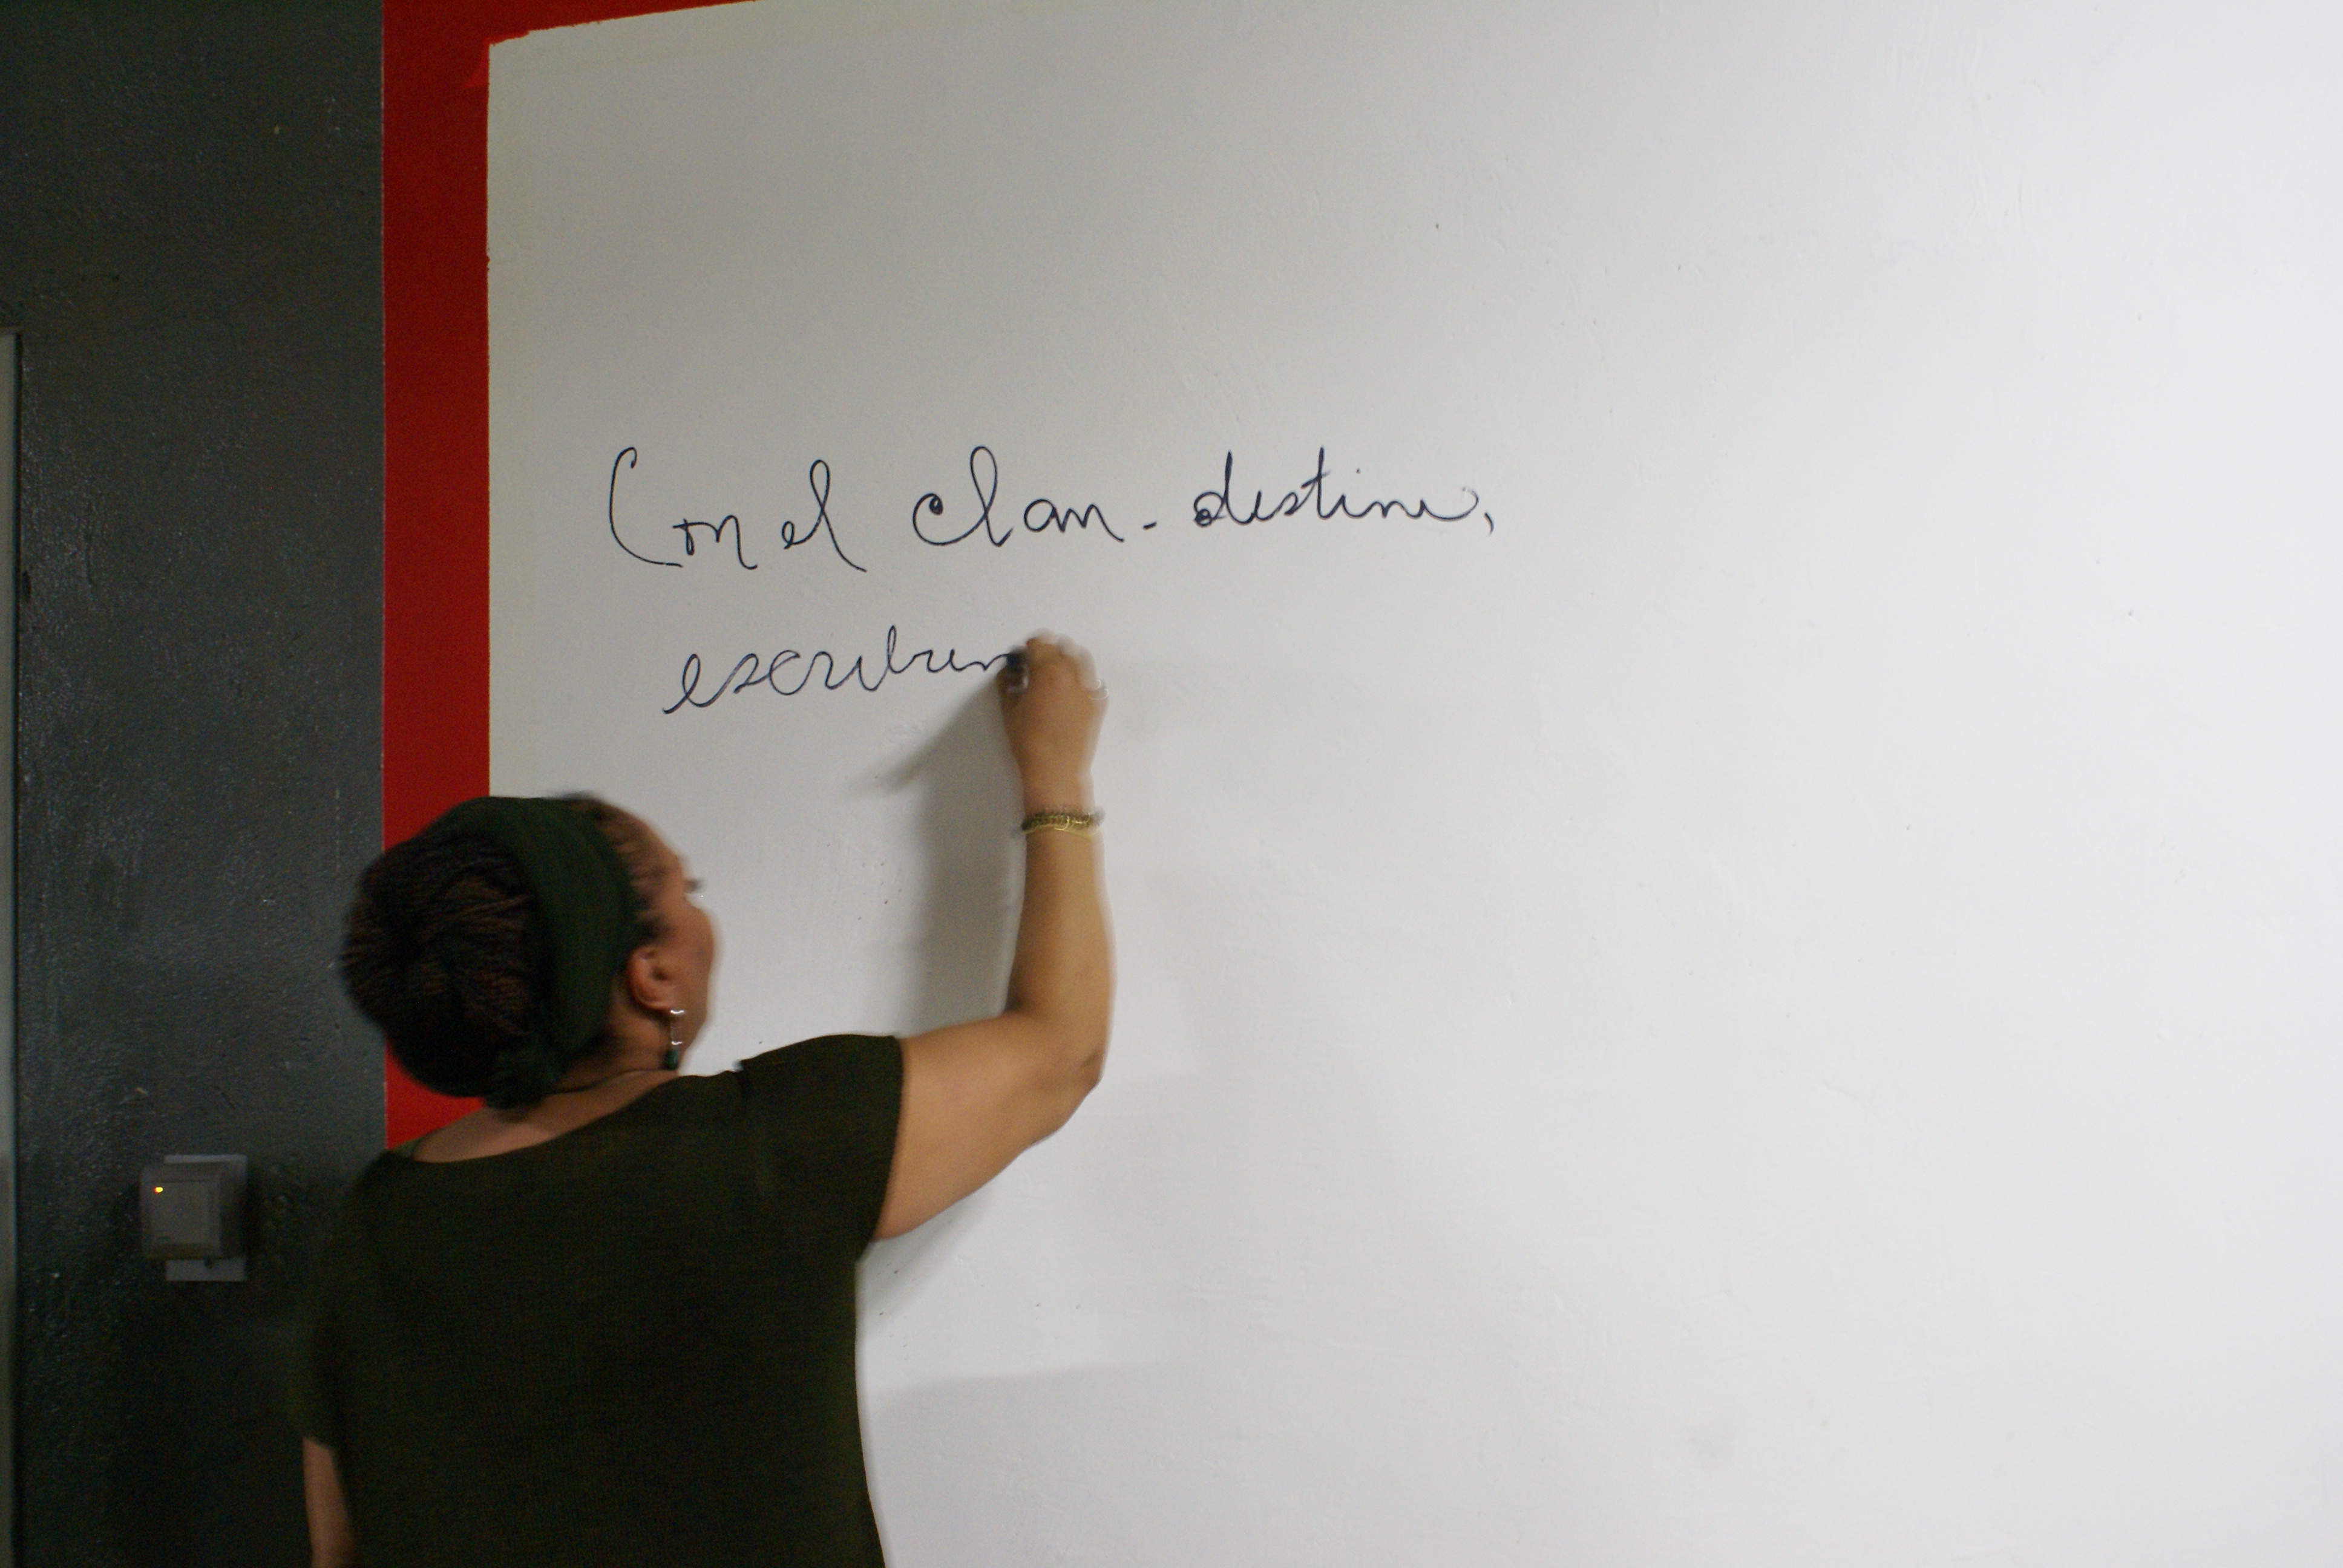 Con el clan-destino,
escribien